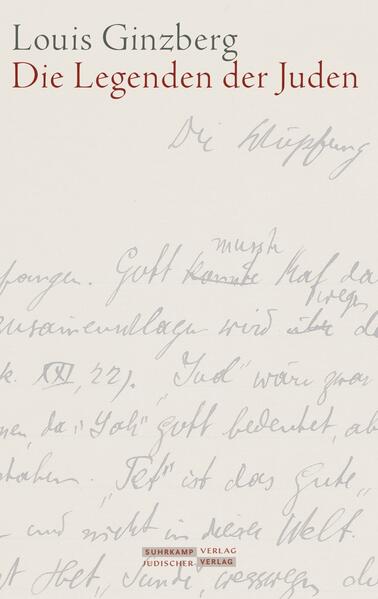 Louis Ginzberg
Die Legenden der Juden
Die Schöpfung
musste
fangen. Gott konnte Kaf da
wegen
zusammenschlagen wird über d
k. XXI, 22). „Jud" wäre zwar
men, da „Jah" Gott bedeutet, ab
staben. „Tet" ist das Gute„
und nicht in dieser Welt.
SUHRKAMP VERLAG
JÜDISCHER VERLAG
t Het, „Sünde, weswegen d